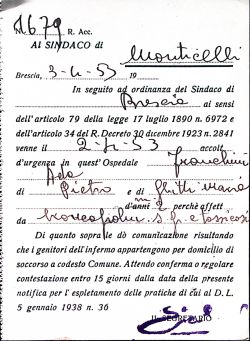 1679 R. Acc.
Al SINDACO di
Monticelli
Brescia, 3-4-53 19
In seguito ad ordinanza del Sindaco di
Brescia ai sensi
dell'articolo 79 della legge 17 luglio 1890 n. 6972 e
dell'articolo 34 del R. Decreto 30 dicembre 1923 n. 2841
venne il 2-4-53 accolt
d'urgenza in quest'Ospedale Franchini
Ada
di Pietro e di
d'anni 2 perchè affett
da
Di quanto sopra le dò comunicazione risultando
che i genitori dell'infermo appartengono per domicilio di
soccorso a codesto Comune. Attendo conferma o regolare
contestazione entro 15 giorni dalla data della presente
notifica per l'espletamento delle pratiche di cui al D. L.
5 gennaio 1938 n. 36
IL SEGRETARIO